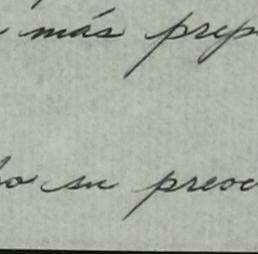 más prep
su preoc